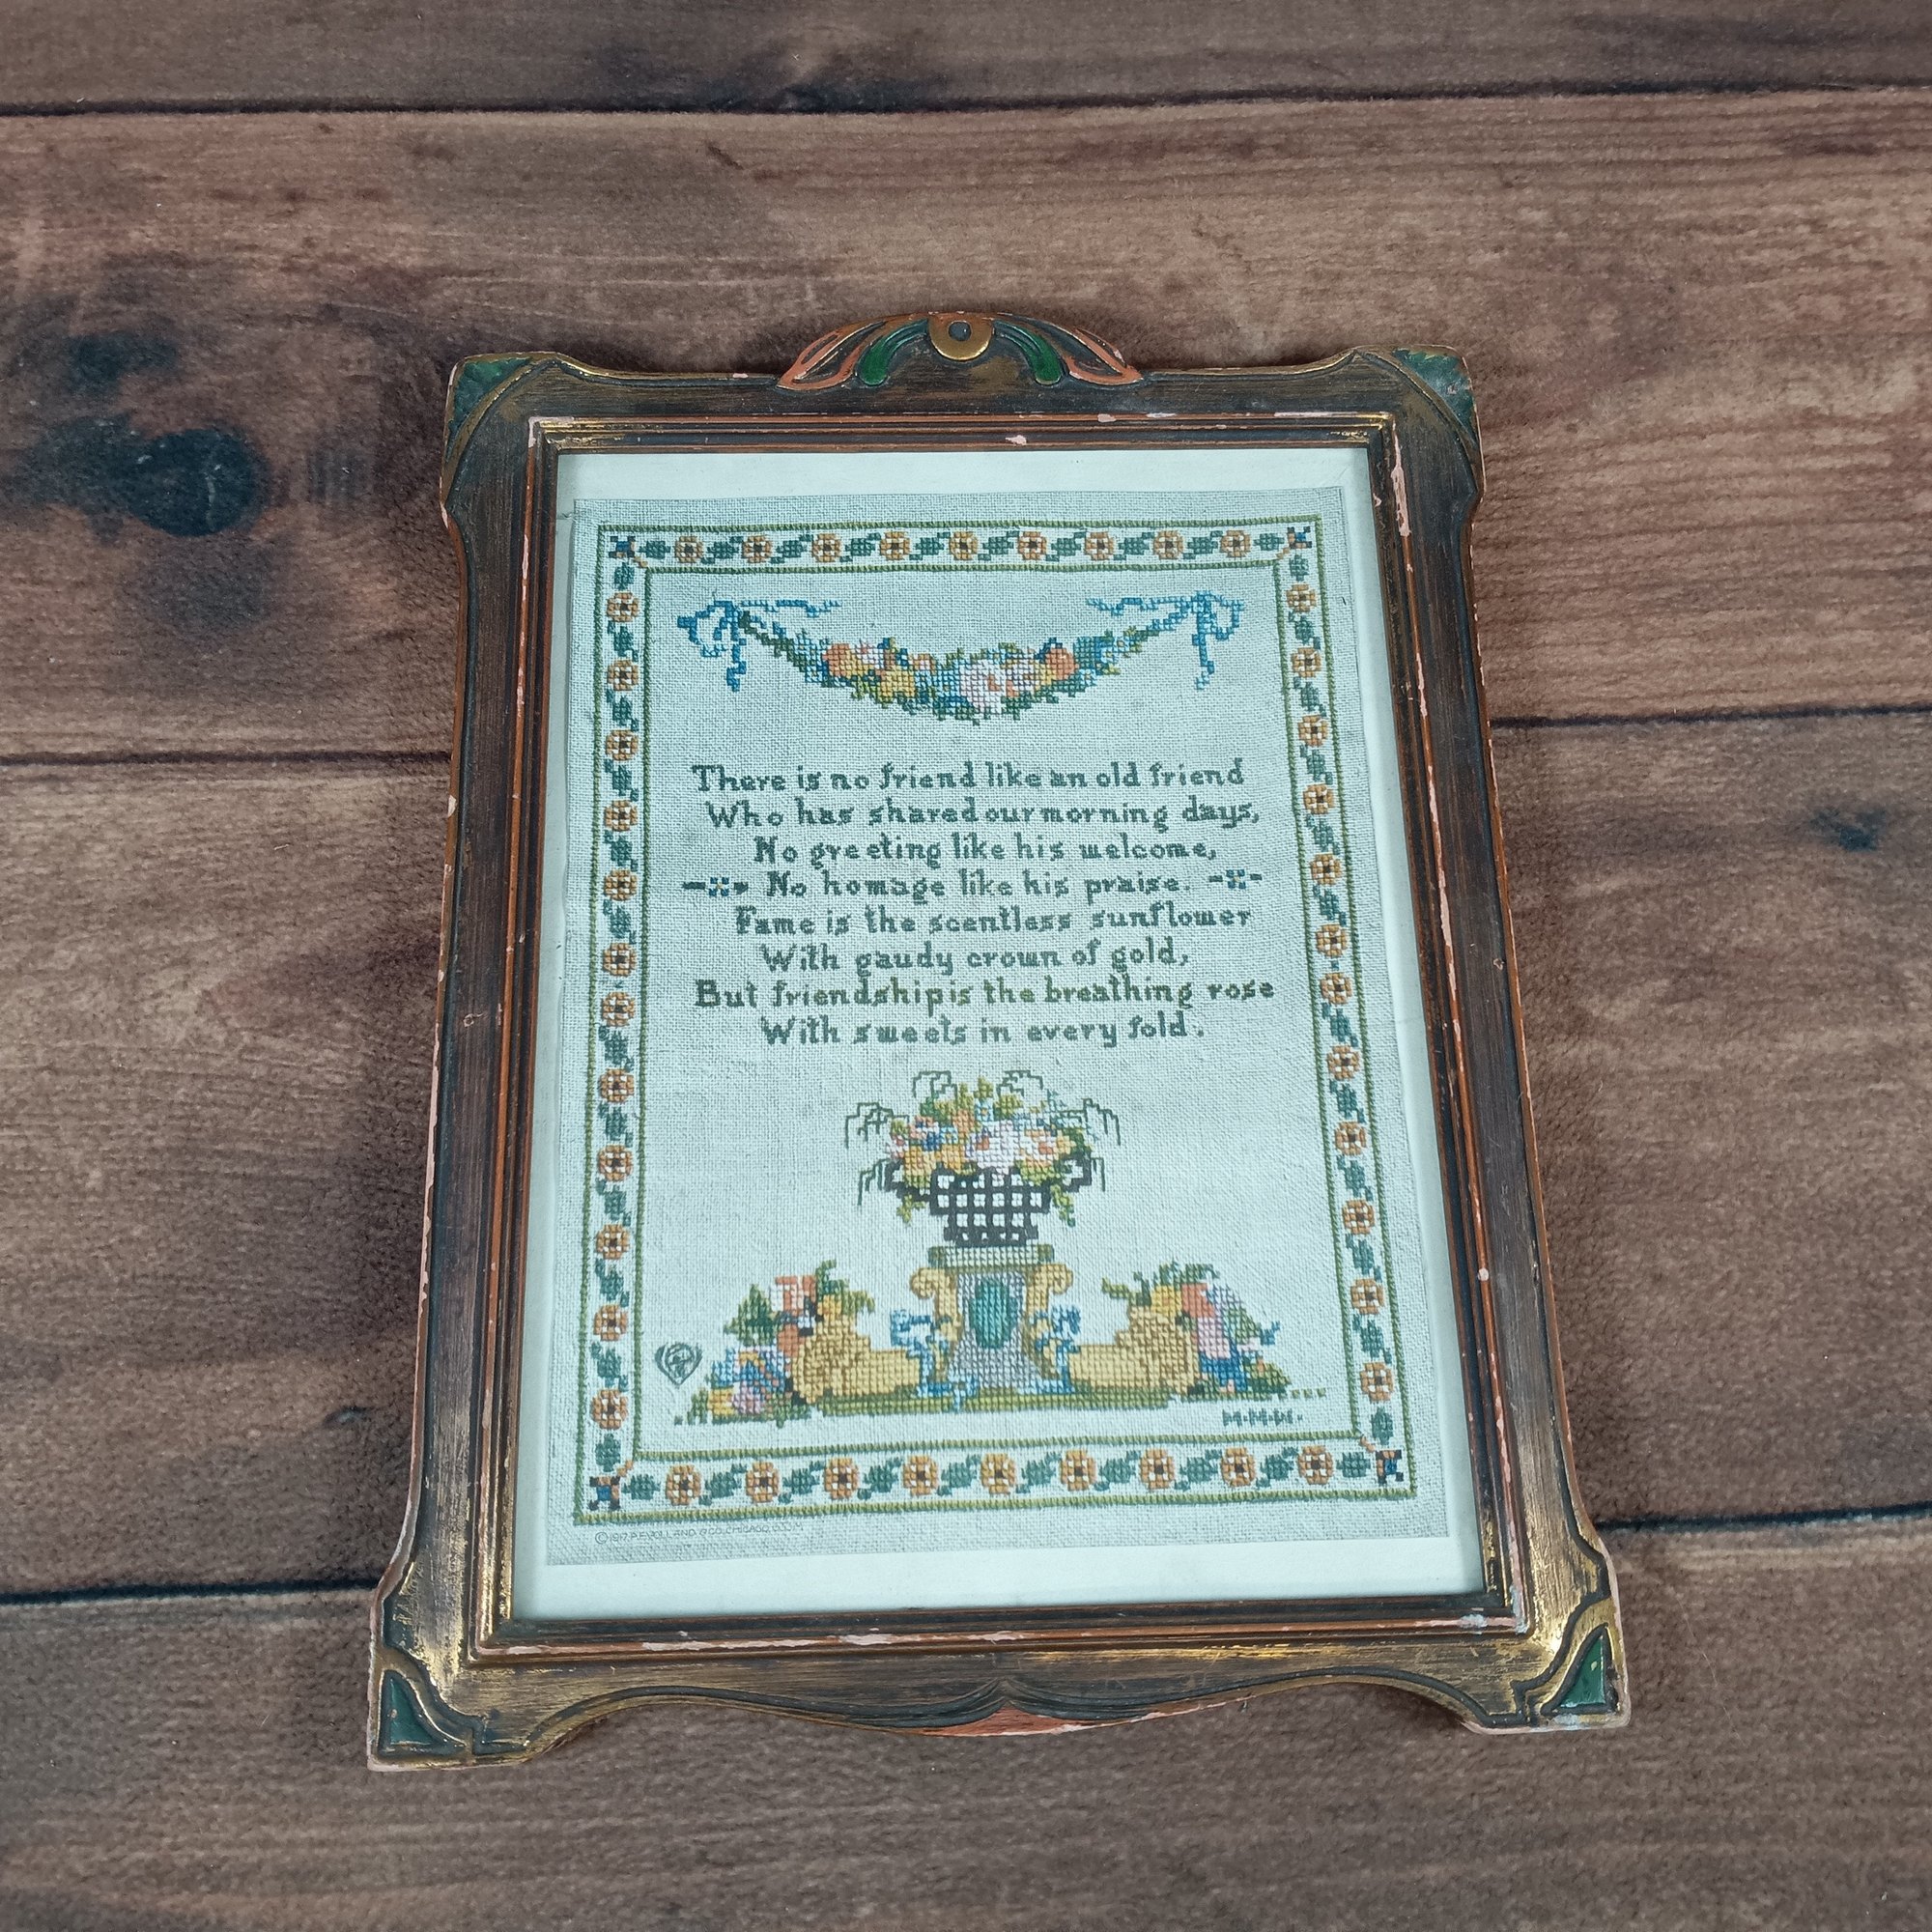 There is no friend like an old friend
Who has shared our morning days,
No greeting like his welcome,
No homage like his praise.
Fame is the scentless sunflower
With gaudy crown of gold,
But friendship is the breathing rose
With sweets in every fold.
M.M.W.
© 1917, P.F. VOLLAND & CO. CHICAGO, U.S.A.